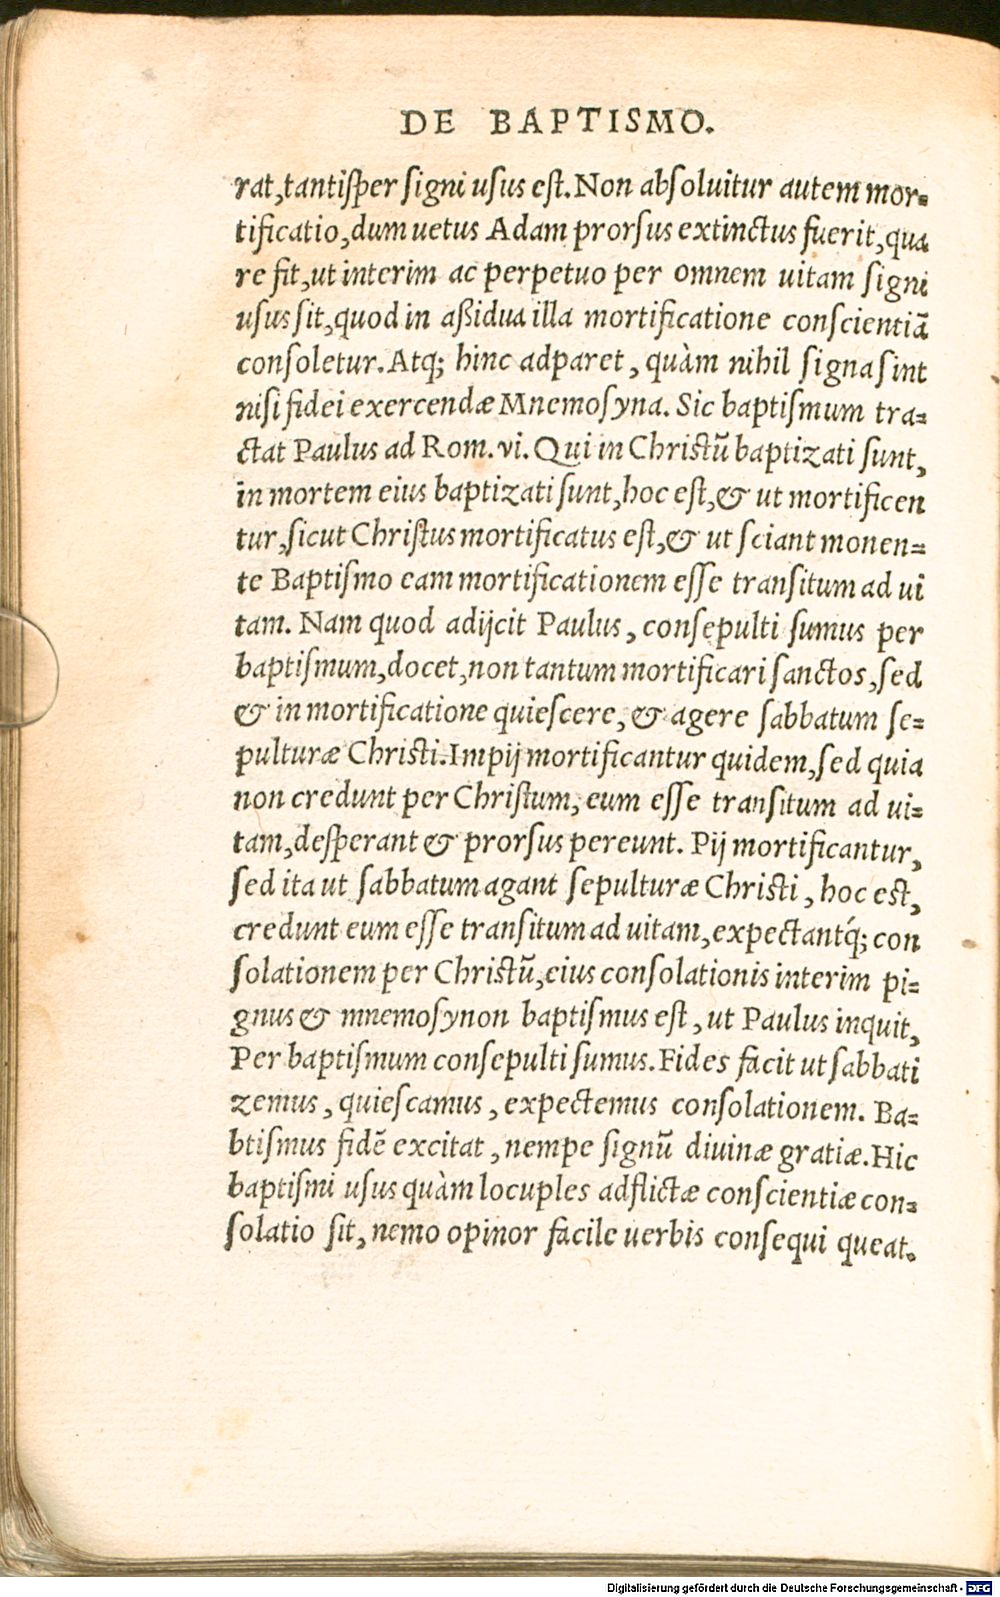 DE BAPTISMO.
rat, tantiſper ſigni uſus eſt. Non abſoluitur autem mor-
tificatio, dum uetus Adam prorſus extinctus fuerit, qua
re fit, ut interim ac perpetuo per omnem uitam ſigni
uſus ſit, quod in aßidua illa mortificatione conſcientiã
conſoletur. Atq; hinc adparet, quàm nihil ſigna ſint
niſi fidei exercendæ Mnemoſyna. Sic baptiſmum tra-
ctat Paulus ad Rom. vi. Qui in Chriſtũ baptizati ſunt,
in mortem eius baptizati ſunt, hoc eſt, & ut mortificen
tur, ſicut Chriſtus mortificatus eſt, & ut ſciant monen-
te Baptiſmo eam mortificationem eſſe tranſitum ad ui
tam. Nam quod adijcit Paulus, conſepulti ſumus per
baptiſmum, docet, non tantum mortificari ſanctos, ſed
& in mortificatione quieſcere, & agere ſabbatum ſe-
pulturæ Chriſti. Impij mortificantur quidem, ſed quia
non credunt per Chriſtum, eum eſſe tranſitum ad ui-
tam, deſperant & prorſus pereunt. Pij mortificantur,
ſed ita ut ſabbatum agant ſepulturæ Chriſti, hoc eſt,
credunt eum eſſe tranſitum ad uitam, expectantq́; con
ſolationem per Chriſtũ, eius conſolationis interim pi-
gnus & mnemoſynon baptiſmus eſt, ut Paulus inquit,
Per baptiſmum conſepulti ſumus. Fides facit ut ſabbati
zemus, quieſcamus, expectemus conſolationem. Ba-
btiſmus fidẽ excitat, nempe ſignũ diuinæ gratiæ. Hic
baptiſmi uſus quàm locuples adflictæ conſcientiæ con-
ſolatio ſit, nemo opinor facile uerbis conſequi queat.
Digitalisierung gefördert durch die Deutsche Forschungsgemeinschaft - DFG